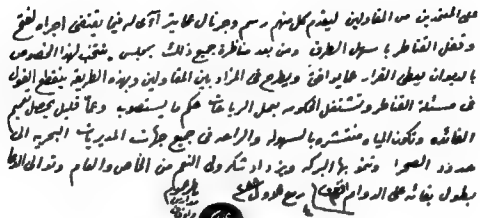 على المعتمدين من المقاولين ليقدم كل منهم رسم وجرنال عما يتراآى له فيما يقتضى اجراه لفتح
وقفل القناطر باسهل الطرق ومن بعد مناظرة جميع ذلك بمجلس ينتخب لهذا الخصوص
بالديوان يعطى القرار عما يوافق ويطرح فى المزاد بين المقاولين وبهذه الطريقة ينقطع القول
فى مسئلة القناطر وتشتغل الحكومه بعمل الرياحات حكم ما يستصوب وعما قليل يحصل تعميم
الفائده وتكون المياه منتشره بالسهوله والراحه فى جميع جهات المديريات البحريه الى
حدود الصحرا وتنمو بها البركه ويزداد شكر ولى النعم من الخاص والعام وتتوالى الدعا
بطول بقائه على الدوام ربيع الاول